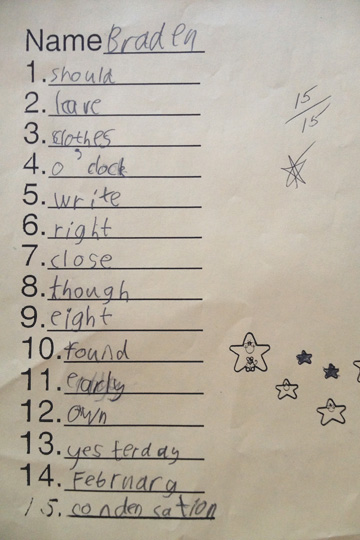 Name Braden
1. should
2. leave
3. clothes
4. o'clock
5. write
6. right
7. close
8. though
9. eight
10. found
11. early
12. own
13. yesterday
14. February
15. condensation
15/15